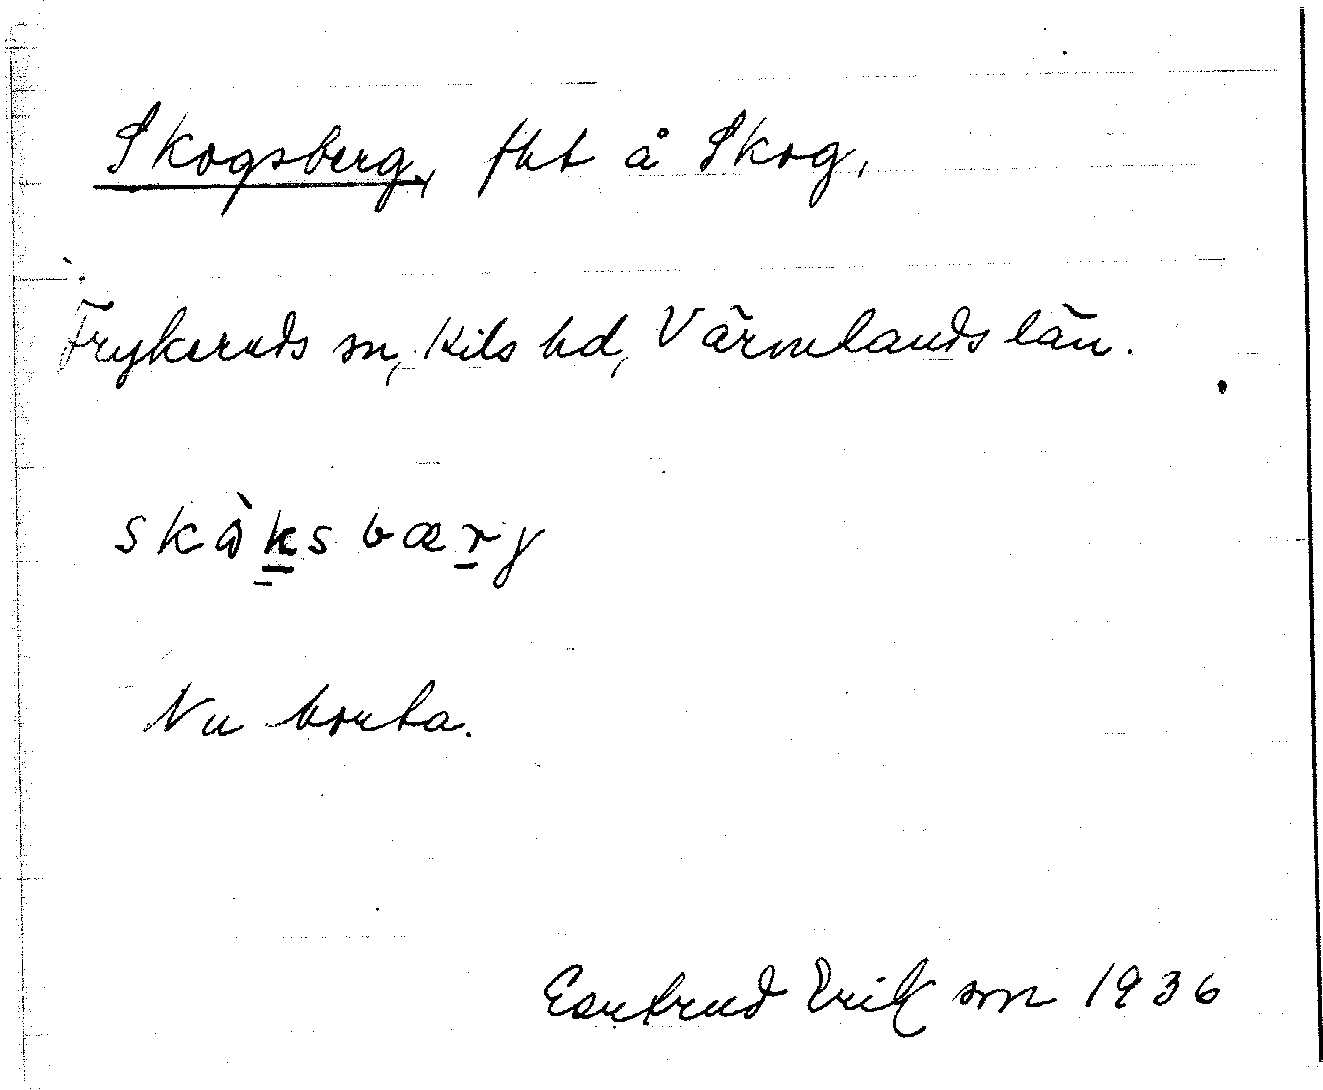 Skogsberg, fht å Skog,
Frykeruds sn, Kils hd, Värmlands län.
skå̀ksbærj
Nu borta.
Gertrud Eriksson 1936